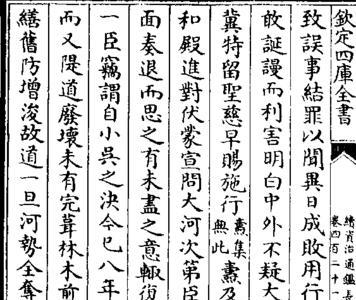 欽定四庫全書
續資治通鑑長
卷四百二十一
致誤事結罪以聞異日成敗用行
敢誕謾而利害明白中外不疑大
冀特留聖慈早賜施行燾集無此燾及
和殿進對伏蒙宣問大河次第臣
面奏退而思之有未盡之意輙復
一臣竊謂自小吳之決今已八年
而又隄道廢壞未有完葺林木前
繕舊防增浚故道一旦河勢全奪